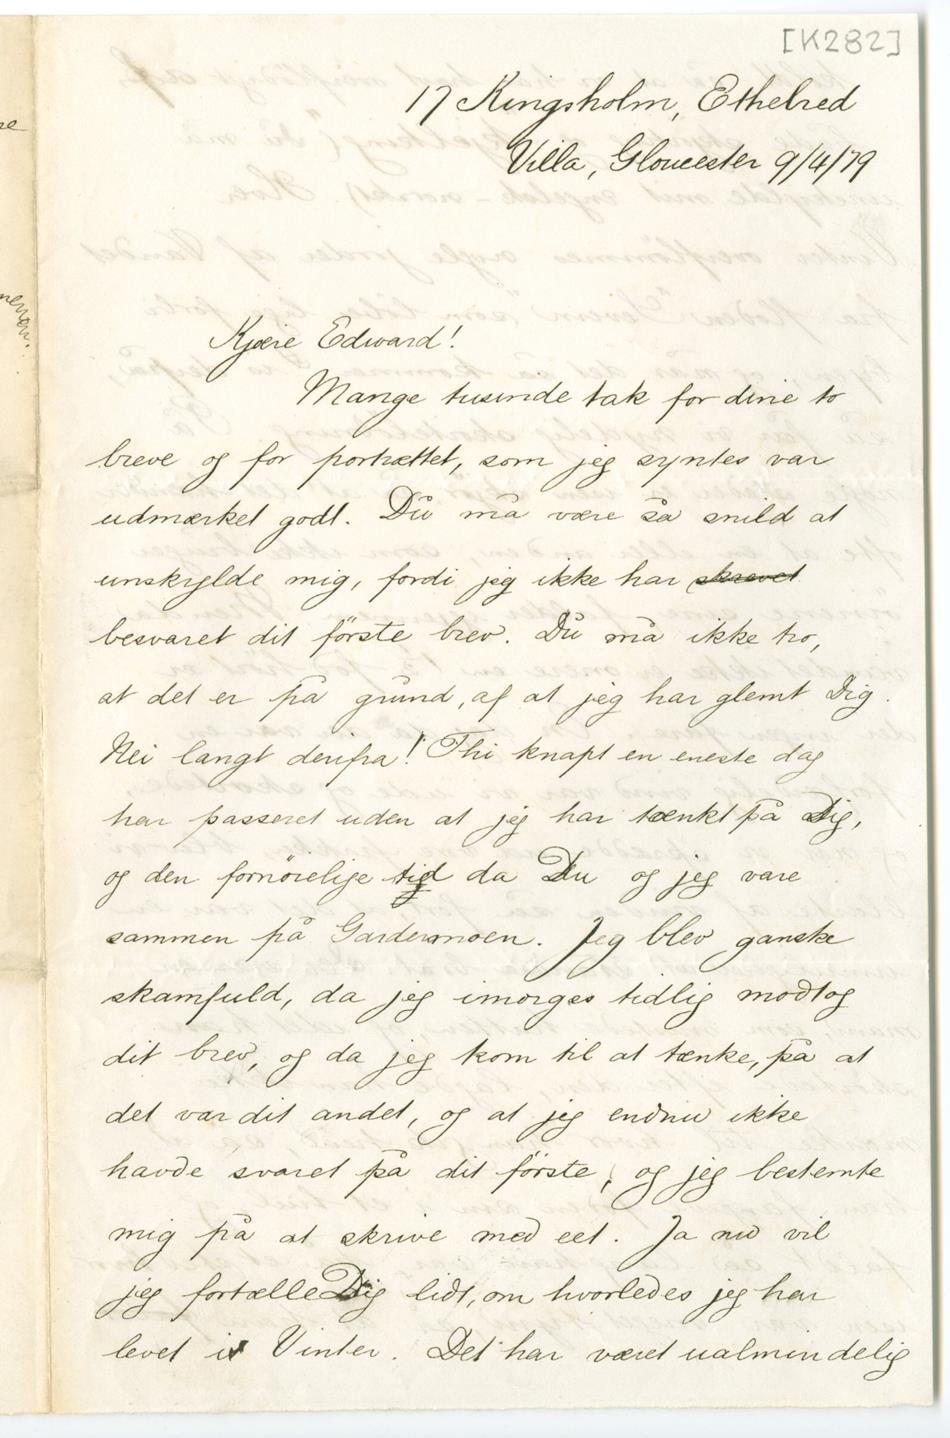 [K282]
17 Kingsholm, Ethelred
Villa, Gloucester 9/4/79
Kjære Edward!
Mange tusinde tak for dine to
breve og for portrættet, som jeg syntes var
udmærket godt. Du må være så snild at
unskylde mig, fordi jeg ikke har skrevet
besvaret dit förste brev. Du må ikke tro,
at det er på grund, af at jeg har glemt Dig.
Nei langt derifra! Thi knapt en eneste dag
har passeret uden at jeg har tænkt på Dig,
og den fornöielige tid da Du og jeg vare
sammen på Gardermoen. Jeg blev ganske
skamfuld, da jeg imorges tidlig modtog
dit brev, og da jeg kom til at tænke, på at
det var dit andet, og at jeg endnu ikke
havde svaret på dit förste, og jeg bestemte
mig på at skrive med eet. Ja nu vil
jeg fortælle Dig lidt, om hvorledes jeg har
levet i Vinter. Det har været ualmindelig